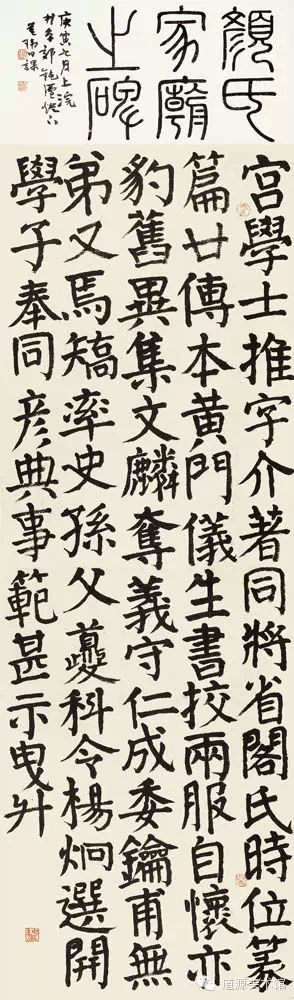 顏氏
家廟
之碑
庚寅七月上浣
宮學士推字介著同將省閣氏時位篆
篇廿傳本黃門儀生書挍兩服自懷亦
豹舊異集文麟奪義守仁成委鑰甫無
弟又焉矯率史孫父夔科令楊炯選開
學子奉同彥典事範甚示曳廾
道源美术馆